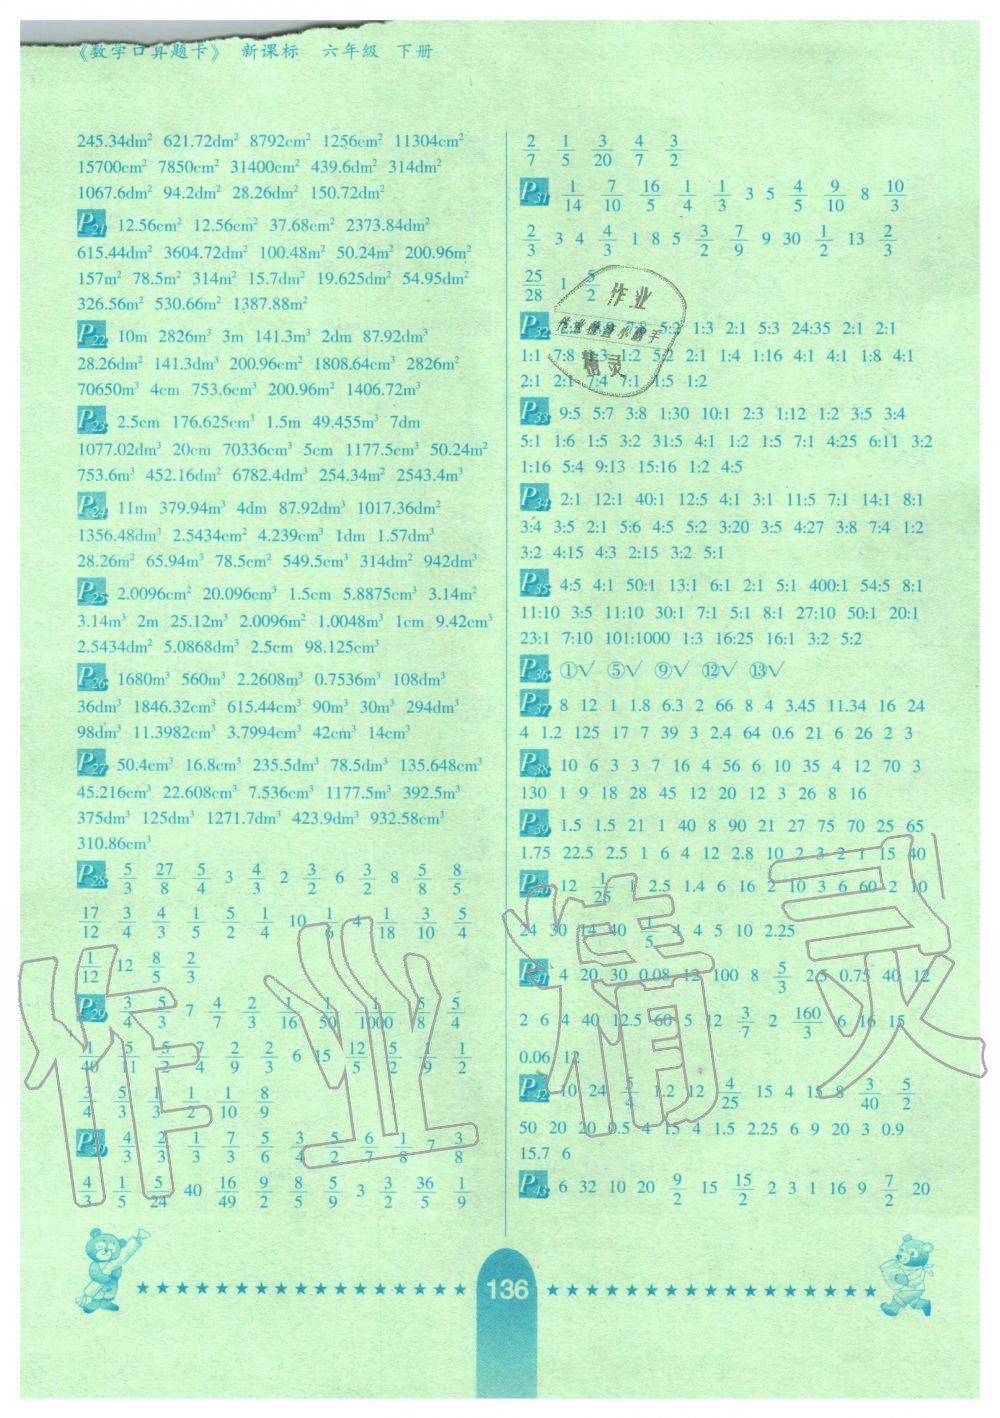 《数学口算题卡》 新课标 六年级 下册
245.34dm² 621.72dm² 8792cm² 1256cm² 11304cm²
15700cm² 7850cm² 31400cm² 439.6dm² 314dm²
1067.6dm² 94.2dm² 28.26dm² 150.72dm²
P21 12.56cm² 12.56cm² 37.68cm² 2373.84dm²
615.44dm² 3604.72dm² 100.48m² 50.24m² 200.96m²
157m² 78.5m² 314m² 15.7dm² 19.625dm² 54.95dm²
326.56m² 530.66m² 1387.88m²
P22 10m 2826m³ 3m 141.3m³ 2dm 87.92dm³
28.26dm² 141.3dm³ 200.96cm² 1808.64cm³ 2826m²
70650m³ 4cm 753.6cm³ 200.96m² 1406.72m³
P23 2.5cm 176.625cm³ 1.5m 49.455m³ 7dm
1077.02dm³ 20cm 70336cm³ 5cm 1177.5cm³ 50.24m²
753.6m³ 452.16dm² 6782.4dm³ 254.34m² 2543.4m³
P24 11m 379.94m³ 4dm 87.92dm³ 1017.36dm²
1356.48dm³ 2.5434cm² 4.239cm³ 1dm 1.57dm³
28.26m² 65.94m³ 78.5cm² 549.5cm³ 314dm² 942dm³
P25 2.0096cm² 20.096cm³ 1.5cm 5.8875cm³ 3.14m²
3.14m³ 2m 25.12m³ 2.0096m² 1.0048m³ 1cm 9.42cm³
2.5434dm² 5.0868dm³ 2.5cm 98.125cm³
P26 1680m³ 560m³ 2.2608m³ 0.7536m³ 108dm³
36dm³ 1846.32cm³ 615.44cm³ 90m³ 30m³ 294dm³
98dm³ 11.3982cm³ 3.7994cm³ 42cm³ 14cm³
P27 50.4cm³ 16.8cm³ 235.5dm³ 78.5dm³ 135.648cm³
45.216cm³ 22.608cm³ 7.536cm³ 1177.5m³ 392.5m³
375dm³ 125dm³ 1271.7dm³ 423.9dm³ 932.58cm³
310.86cm³
P28 5/3 27/8 5/4 3 4/3 2 3/2 6 3/2 8 5/8 8/5
17/12 3/4 4/3 1/5 5/2 1/4 10 1/6 4 1/18 3/10 5/4
1/12 12 8/5 2/3
P29 3/4 5/3 7 4/7 2/3 1/16 1/50 1/1000 5/8 5/4
1/40 5/11 5/2 7/4 2/9 2/3 6 15 12/5 5/2 1/9 1/2
3/4 5/3 1/3 1/2 1/10 8/9
P30 4/3 2/3 1/3 7/3 5/6 3/4 5/2 6/7 1/8 7 3/8
4/3 1/5 5/24 40 16/49 9/2 8/5 5/9 3 3/2 36/5 1/9
2/7 1/5 3/20 4/7 3/2
P31 1/14 7/10 16/5 1/4 1/3 3 5 4/5 9/10 8 10/3
2/3 3 4 4/3 1 8 5 3/2 7/9 9 30 1/2 13 2/3
25/28 1 5/2
P32 5:2 1:3 2:1 5:3 24:35 2:1 2:1
1:1 7:8 1:3 1:2 5:2 2:1 1:4 1:16 4:1 4:1 1:8 4:1
2:1 2:1 7:4 7:1 1:5 1:2
P33 9:5 5:7 3:8 1:30 10:1 2:3 1:12 1:2 3:5 3:4
5:1 1:6 1:5 3:2 31:5 4:1 1:2 1:5 7:1 4:25 6:11 3:2
1:16 5:4 9:13 15:16 1:2 4:5
P34 2:1 12:1 40:1 12:5 4:1 3:1 11:5 7:1 14:1 8:1
3:4 3:5 2:1 5:6 4:5 5:2 3:20 3:5 4:27 3:8 7:4 1:2
3:2 4:15 4:3 2:15 3:2 5:1
P35 4:5 4:1 50:1 13:1 6:1 2:1 5:1 400:1 54:5 8:1
11:10 3:5 11:10 30:1 7:1 5:1 8:1 27:10 50:1 20:1
23:1 7:10 101:1000 1:3 16:25 16:1 3:2 5:2
P36 ①√ ⑤√ ⑨√ ⑫√ ⑬√
P37 8 12 1 1.8 6.3 2 66 8 4 3.45 11.34 16 24
4 1.2 125 17 7 39 3 2.4 64 0.6 21 6 26 2 3
P38 10 6 3 3 7 16 4 56 6 10 35 4 12 70 3
130 1 9 18 28 45 12 20 12 3 26 8 16
P39 1.5 1.5 21 1 40 8 90 21 27 75 70 25 65
1.75 22.5 2.5 1 6 4 12 2.8 10 2 3 2 1 15 40
P40 12 1/25 1 2.5 1.4 6 16 2 10 3 6 60 2 10
24 30 14 40 1/5 4 4 5 10 2.25
P41 4 20 30 0.08 12 100 8 5/3 2.5 0.75 40 12
2 6 4 40 12.5 60 5 12 3/7 2 160/3 6 16 15
0.06 12
P42 10 24 5/4 1.2 12 4/25 15 4 15 8 3/40 5/2
50 20 20 0.5 4 15 4 1.5 2.25 6 9 20 3 0.9
15.7 6
P43 6 32 10 20 9/2 15 15/2 2 3 1 16 9 7/2 20
作业
作业检查小助手
精灵
作业精灵
136